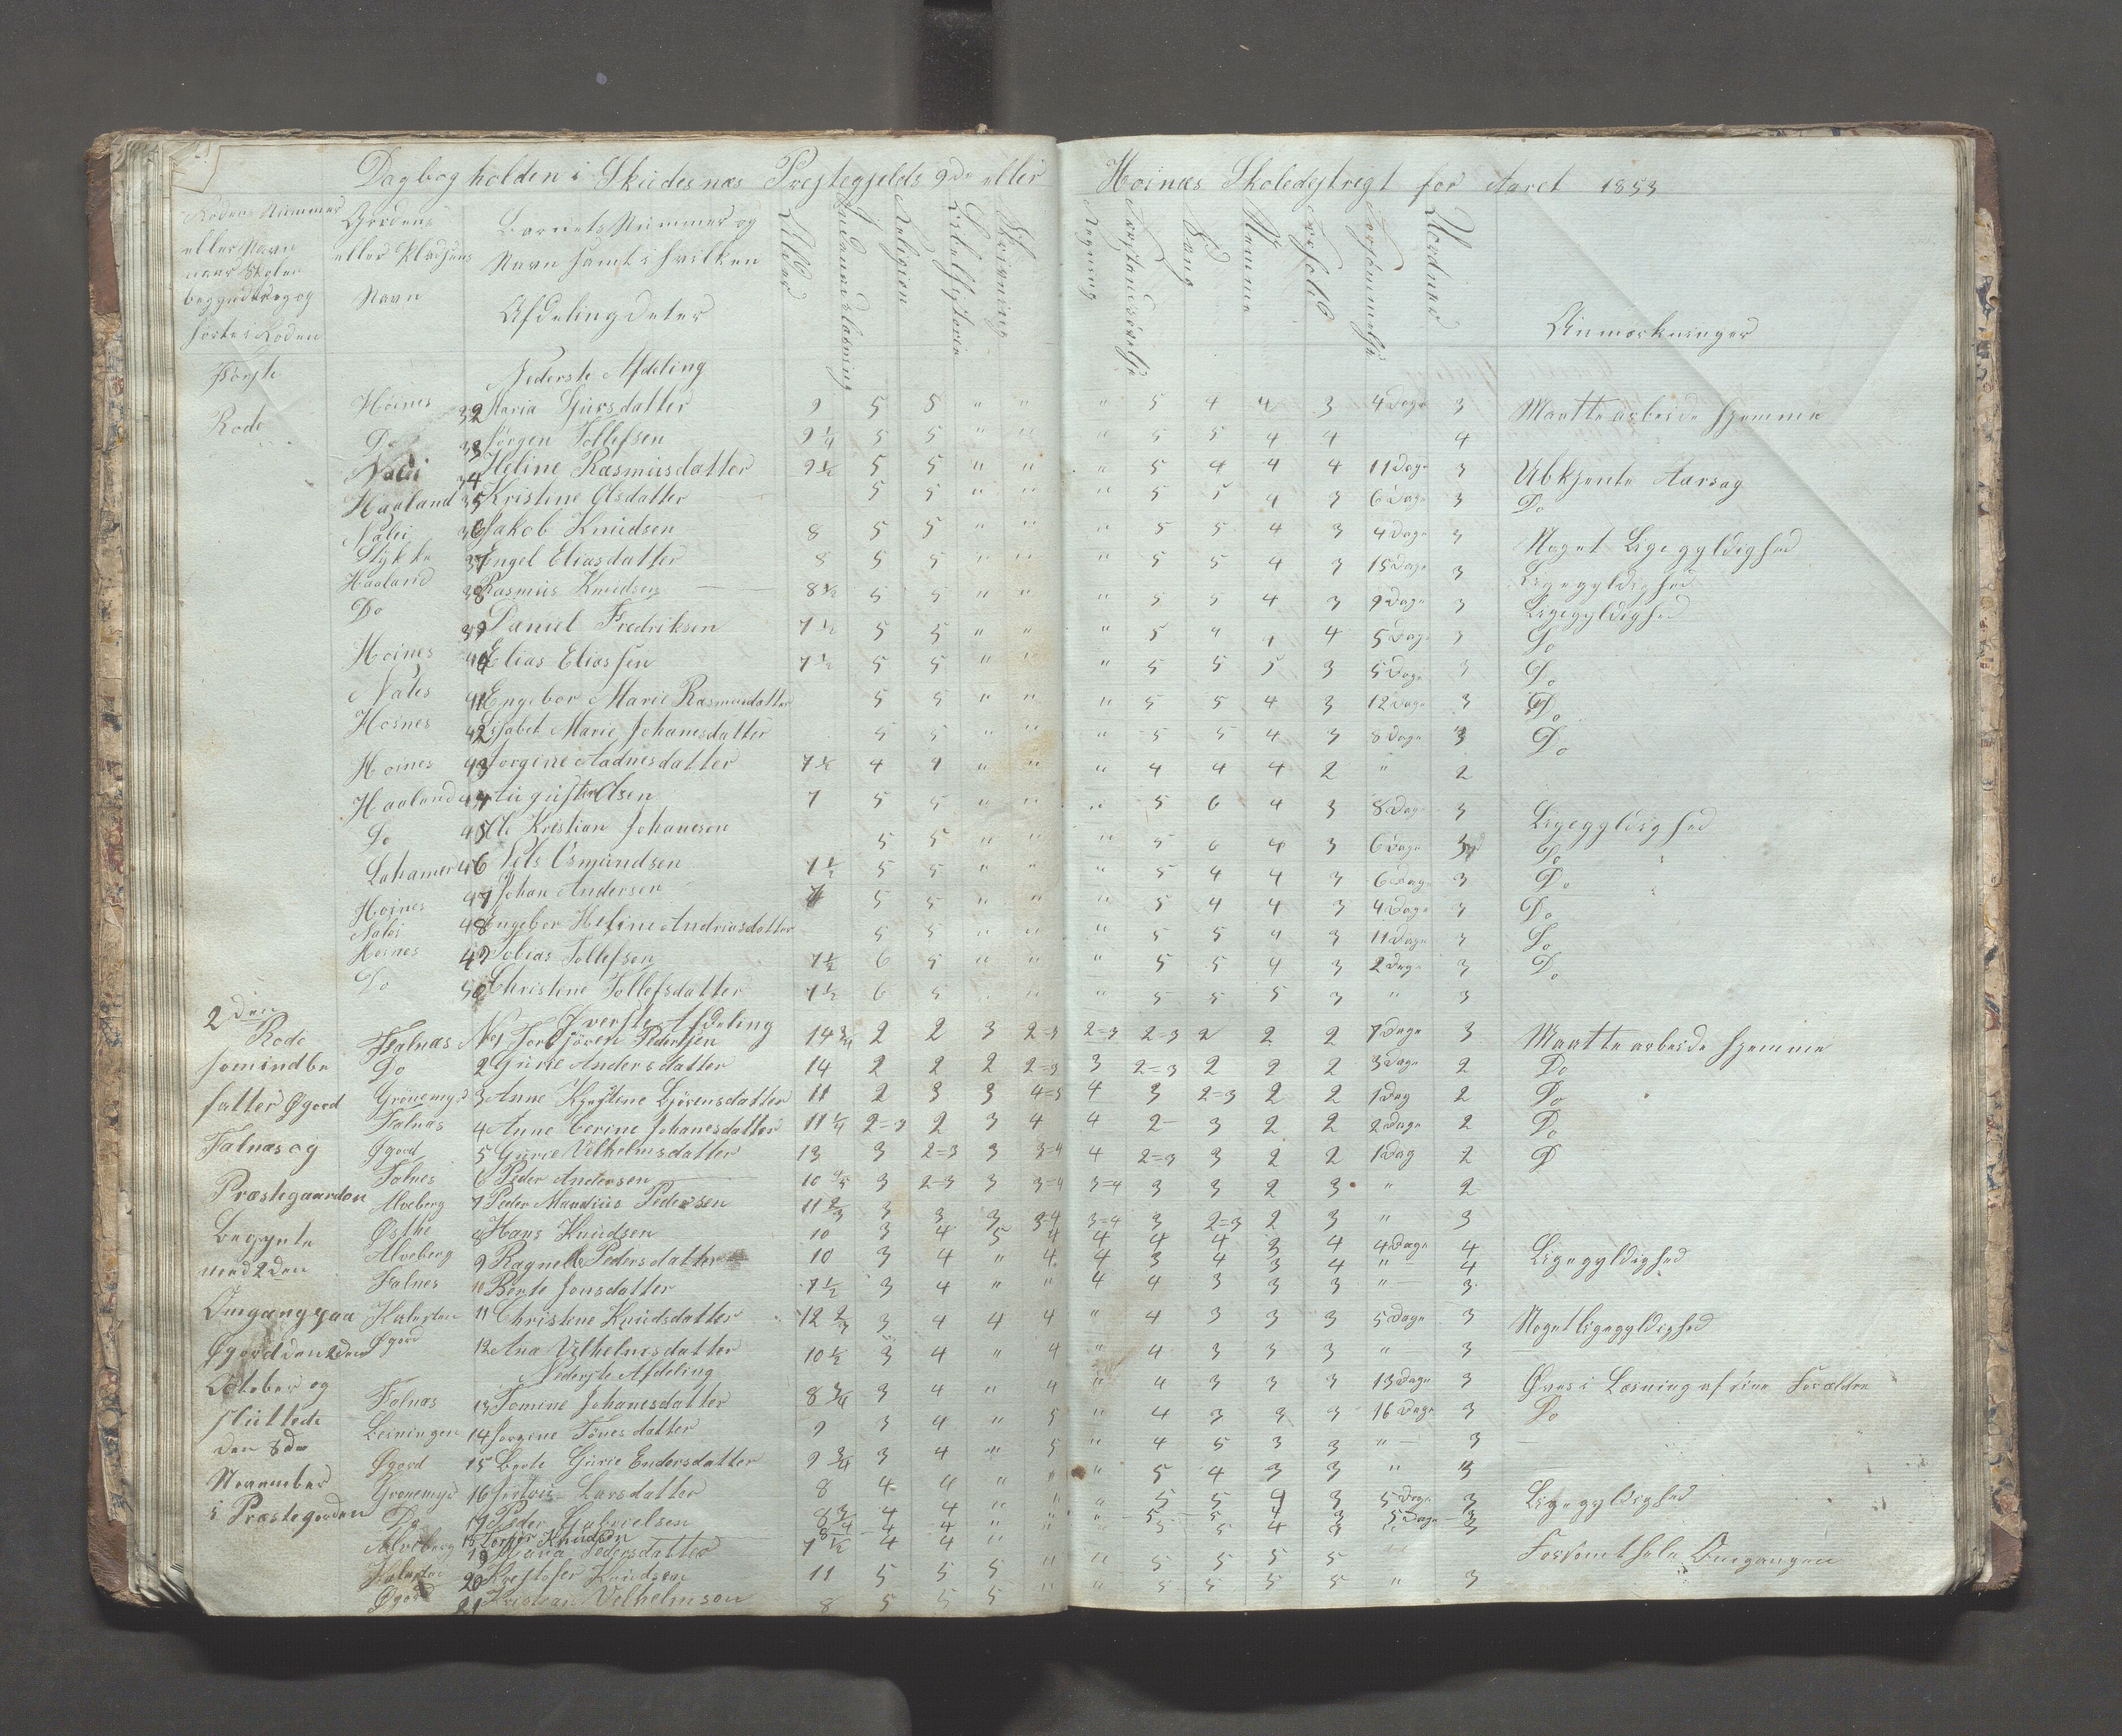 Dagbog holden i Skudesnæs Prestegjelds 9de eller Hoinæs Skoledestrigt for Aaret 1853
Rodens Nummer eller Navn naar Skolen begyndte og i Roden
Gordens eller Pladsens Navn
Barnets Nummer og Navn samt i hvilken Afdeling det er
Alder
Indenadslæsning
Religion
Bibelhistorie
Skrivning
Regning
Forstandsøvelse
Sang
Nemme
Forhold
Forsømmelse
Anmærkninger
Første Rode
Nederste Afdeling
Hoines 32 Maria 9 5 5 " " " 5 4 4 3 4 Dage 3 Maatte arbeide hjemme
Do 33 Jörgen Tollefsen 9 1/4 5 5 " " " 5 5 4 4 4
34 Heline Rasmusdatter 9 1/2 5 5 " " " 5 4 4 4 11 Dage 3 Ubkjente Aarsag
Haaland 35 Kristine Olsdatter 5 5 " " " 5 5 4 3 6 Dage 3 Do
36 Jakob Knudsen 8 5 5 " " " 5 5 4 3 4 Dage 3 Noget Ligegyldighed
Stykke 37 Engel Eliasdatter 8 5 5 " " " 5 5 4 3 15 Dage 3 Ligegyldighed
Haaland 38 Rasmus Knudsen 8 1/2 5 5 " " " 5 5 4 3 9 Dage 3 Ligegyldighed
Do 39 Daniel Fredriksen 7 1/2 5 5 " " " 5 4 4 4 5 Dage 3 Do
Hoines 40 Elias Eliassen 7 1/2 5 5 " " " 5 5 5 3 5 Dage 3 Do
41 Engebor Marie Rasmusdatter 5 5 " " " 5 5 4 3 12 Dage 3 Do
Hoines 42 Lisabet Marie Johanesdatter 5 5 " " " 5 5 4 3 8 Dage 3 Do
Hoines 43 Jorgine Aadnesdatter 7 1/2 4 4 " " " 4 4 4 2 " 2
Haaland 44 August Olsen 7 5 5 " " " 5 6 4 3 8 Dage 3 Ligegyldighed
Do 45 Ole Kristian Johanesen 5 5 " " " 5 6 4 3 6 Dage 3 Do
Lahamer 46 Nels Osmundsen 7 1/2 5 5 " " " 5 4 4 3 6 Dage 3 Do
Hoines 47 Johan Andersen 7 5 5 " " " 5 4 4 3 4 Dage 3 Do
48 Engebor Heline Andreasdatter 5 5 " " " 5 5 4 3 11 Dage 3 Do
Hoines 49 Tobias Tollefsen 7 1/2 6 5 " " " 5 5 4 3 2 Dage 3 Do
Do 50 Christene Tollefsdatter 7 1/2 6 5 " " " 5 5 5 3 " 3
2den Rode som indbefatter Øgord Falnæs og Præstegaarden
Begynte med 2den Omgang paa Øgord den 2den October og sluttede den 8de November i Præstegorden
Øverste Afdeling
Falnæs No 1 Torbjören Pedersen 14 3/4 2 2 3 2=3 2=3 2=3 2 2 2 7 Dage 3 Maatte arbeide hjemme
Do 2 Gurie Andersdatter 14 2 2 2 2=3 3 2=3 2 2 2 3 Dage 2 Do
Grönemyr 3 Anne Kristine Björensdatter 11 2 3 3 4=5 4 3 2=3 2 2 1 Dag 2 Do
Falnæs 4 Anne Cerine Johanesdatter 11 1/4 2=3 2 3 4 4 2- 3 2 2 2 Dage 2 Do
Øgord 5 Gurie Vilhelmsdatter 13 3 2=3 3 3=4 4 2=3 3 2 2 1 Dag 2 D
Falnes 6 Peder Andersen 10 3 2-3 3 3=4 3=4 3 3 2 3 " 2
Alveberg 7 Peder Mandius Pedersen 11 2/3 3 3 3 3-4 3=4 3 2=3 2 3 " 3
Østhe 8 Hans Knudsen 10 3 4 5 4 4 4 4 3 4 4 Dage 4 Ligegyldighed
Alveberg 9 Ragnell Pedersdatter 10 3 4 " 4 4 3 4 3 4 " 4
Falnes 10 Berte Jonsdatter 7 1/2 3 4 " " 4 4 3 3 3 " 3
11 Christine Knudsdatter 12 2/3 3 4 4 4 " 4 3 3 3 5 Dage 3 Noget ligegyldighed
Øgord 12 Ana Vilhelmsdatter 10 1/2 3 4 " 4 " 4 3 3 3 " 3
Nederste Afdeling
Falnæs 13 Tomine Johanesdatter 8 3/4 3 4 " 4 " 4 3 3 3 13 Dage 3 Øves i Læsning af sine Foreldre
Leiningen 14 Jorgine Tönesdatter 9 3 4 " 5 " 4 3 3 3 16 Dage 3 Do
Øgord 15 Berte Gurie Endersdatter 9 3/4 3 4 " 5 " 4 5 3 3 " 3
Grönemyr 16 Larsdatter 8 4 4 " " " 5 4 3 3 " 3
Do 17 Peder Gabrielsen 8 3/4 4 4 " " " 5 5 4 3 5 Dage 3 Ligegyldighed
Alveberg 18 Torger Knudsen 8 4 4 " " " 5 5 4 3 5 Dage 3
19 Maria Pedersdatter 7 1/2 4 4 " " 5 5 4 3 " 3
20 Krestofer Knudsen 11 5 5 5 " " 5 5 5 5 Forsömt hele Omgangen
Øgord 21 Kristian Vilhelmsen 8 5 5 5 " " 5 5 5 5 " 3